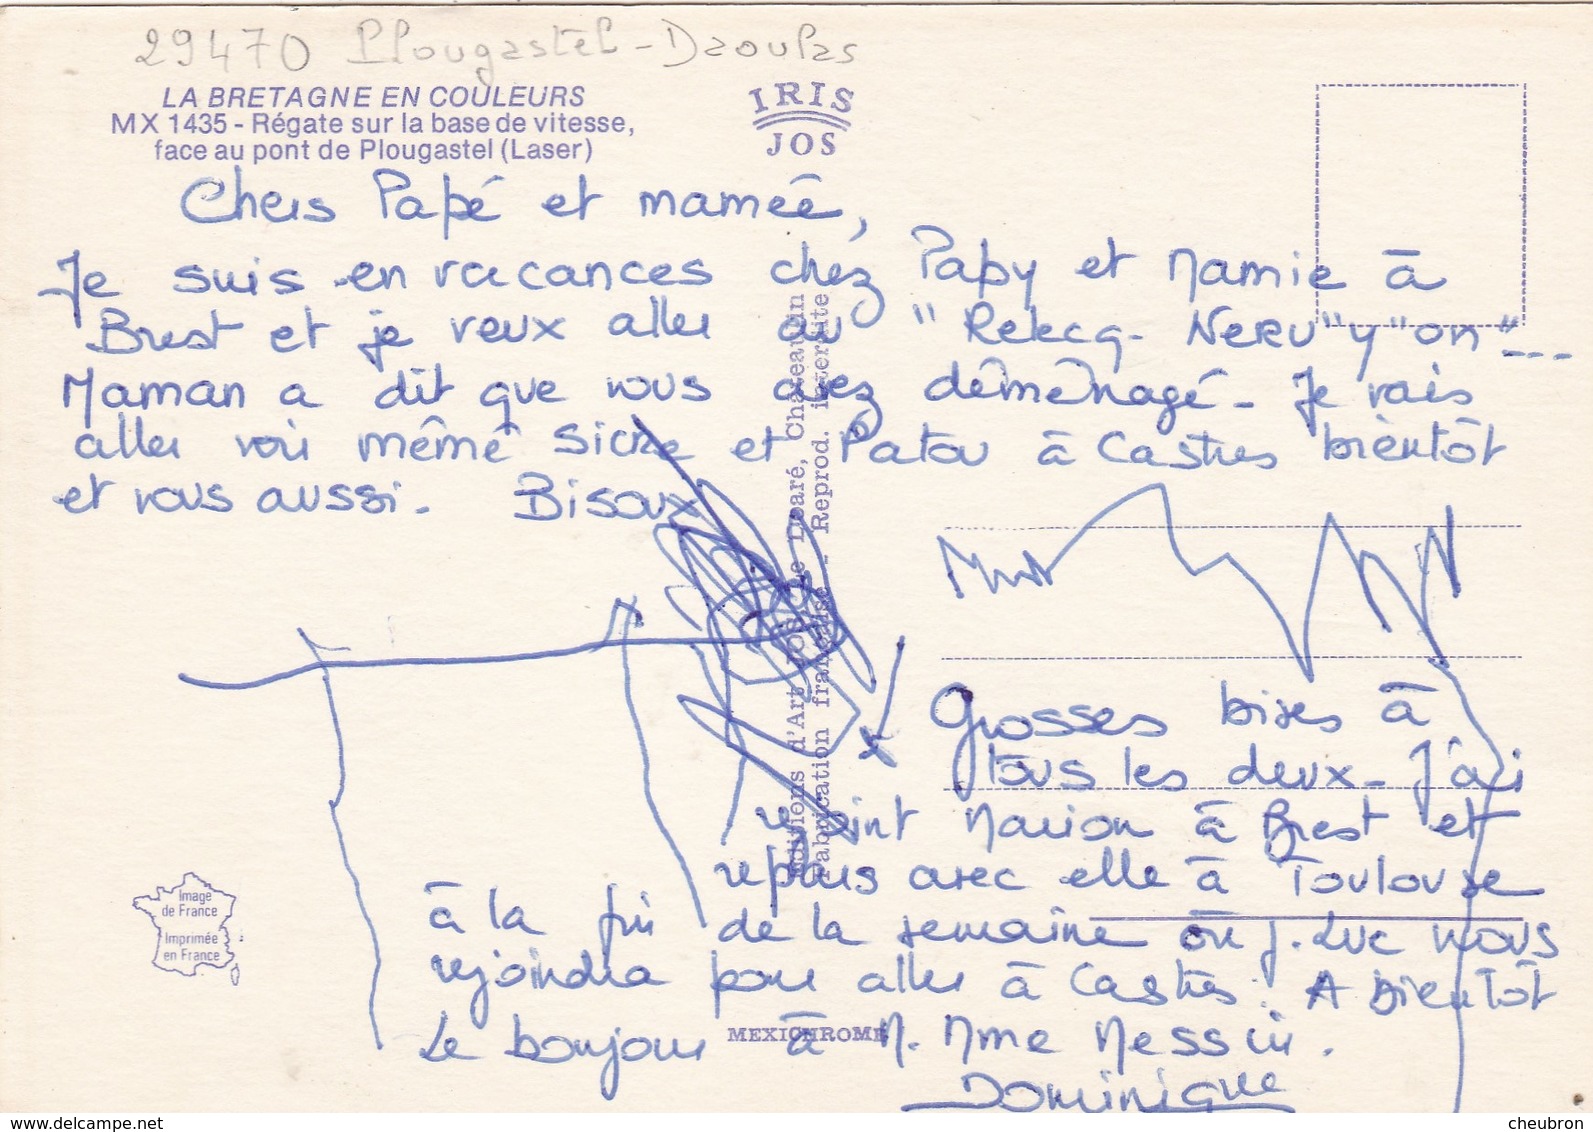 29470 Plougastel-Daoulas
LA BRETAGNE EN COULEURS
MX 1435 - Régate sur la base de vitesse,
face au pont de Plougastel (Laser)
IRIS
JOS
Chers Papé et mamée,
Je suis en vacances chez Papy et Mamie à
Brest et je veux aller au "Relecq-Kerhu"y"on"---
Maman a dit que vous avez déménagé - Je vais
aller voir même et Patou à Castres bientôt
et vous aussi. Bisoux
Grosses bises à
tous les deux - J'ai
rejoint Marion à Brest et
repars avec elle à Toulouse
à la fin de la semaine où J. Luc nous
rejoindra pour aller à Castres. A bientôt
Le bonjour à M. Mme Messin.
Dominique
Editions d'Art JOS Le Doaré, Chateaulin
Fabrication française - Reprod. interdite
Image
de France
Imprimée
en France
MEXICHROME
www.delcampe.net
cheubron